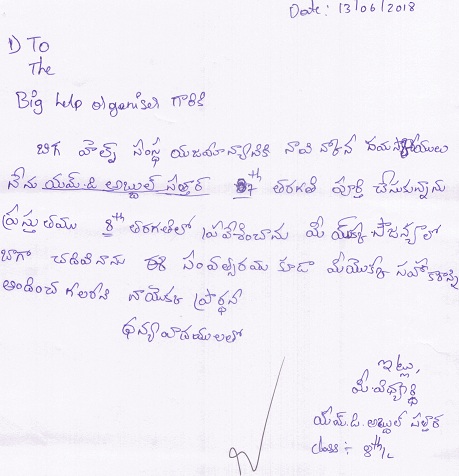 Date: 13/06/2018
1) To
The
Big help organiser గారికి
బిగ హెల్ప్ సంస్థ యజమాన్యానికి నావి
నేను యమ్.డి అబ్దుల్ సత్తార్ 7th తరగతి పూర్తి చేసుకున్నాను
ప్రస్తుతము 8th తరగతిలో ప్రవేశించాను మీ యొక్క సౌజన్యాలో
బాగా చదివినాను ఈ సంవత్సరము కూడా మీయొక్క సహాకారాన్ని
అందించ గలరని నాయొక్క ప్రార్థన
ధన్యవాదములలో
ఇట్లు,
మీ విధ్యార్థి
యమ్.డి.అబ్దుల్ సత్తార
class :- 8th/c